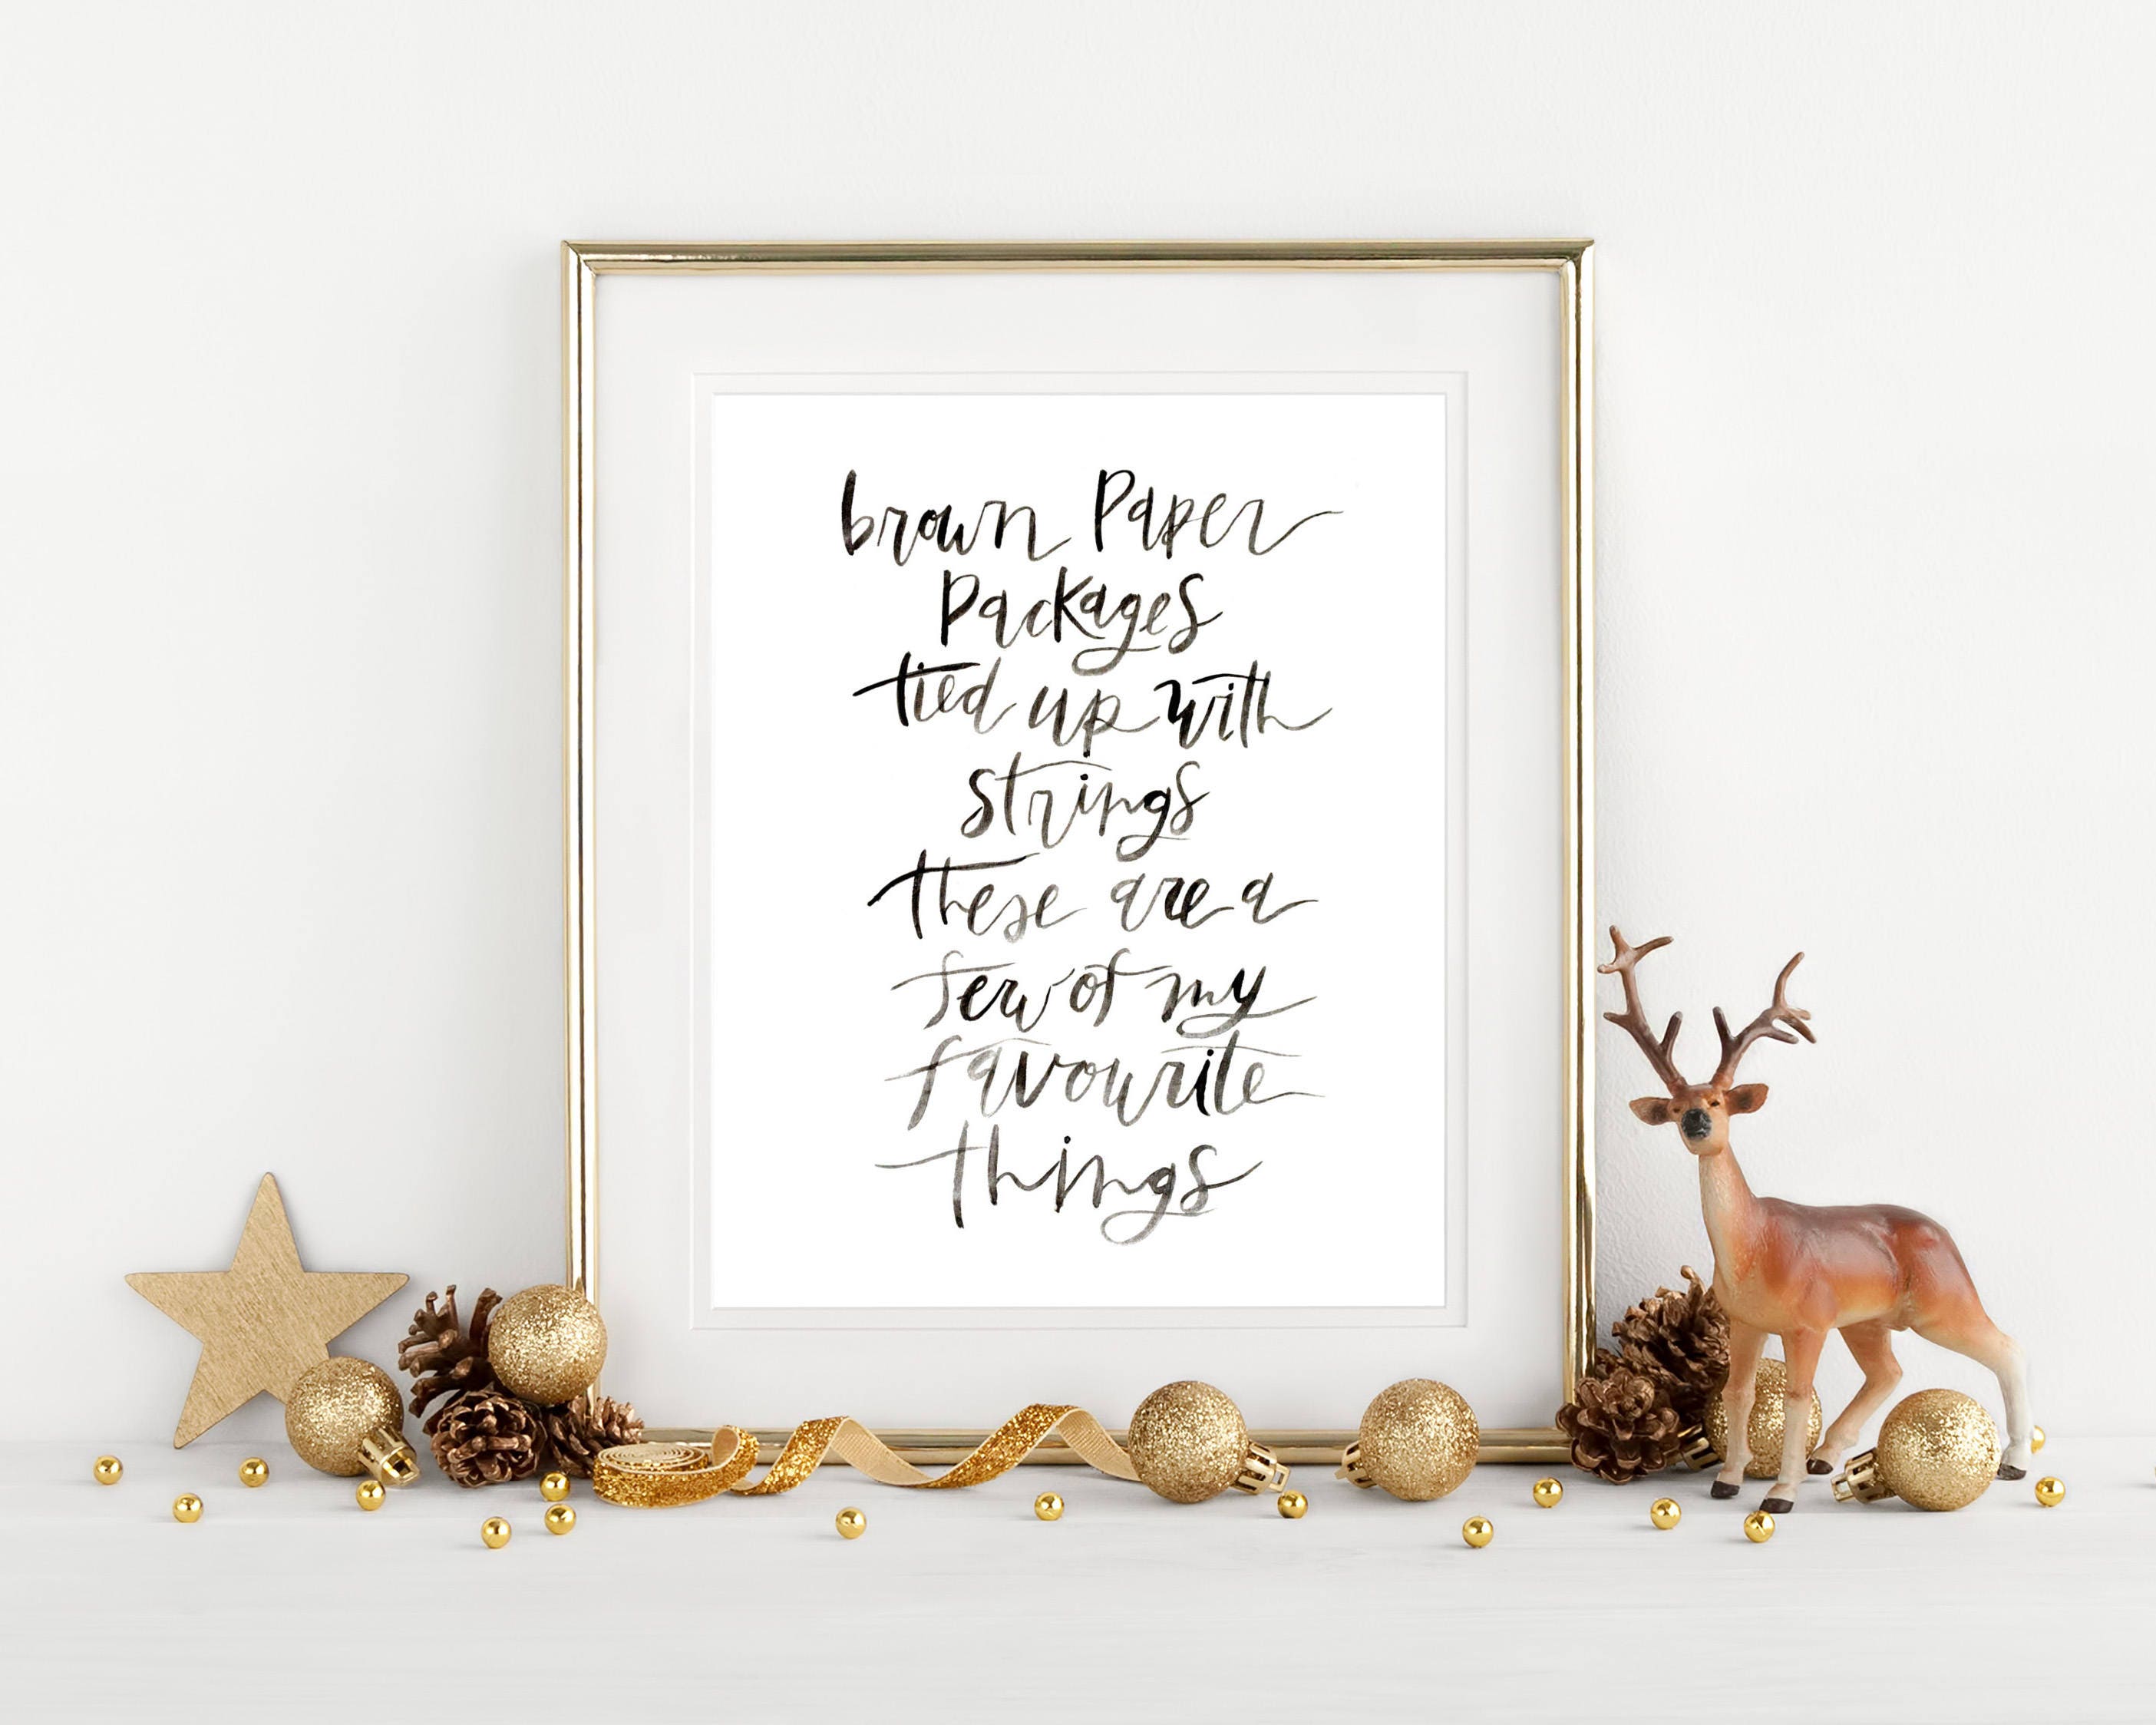 brown Paper
Packages
tied up with
strings
these are a
few of my
favourite
things